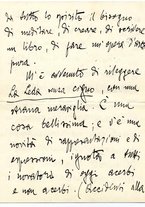 da tutto lo spirito il bisogno
di meditare, di creare, di scrivere
un libro, di fare un'opera d'arte
pura.
Mi è avvenuto di rileggere
La Leda senza cigno, con una
strana meraviglia. È una
cosa bellissima; e v'è una
novità di rappresentazioni e di
espressioni, ignota a tutti
i novatori di oggi acerbi
e non acerbi. (Recidenti alla